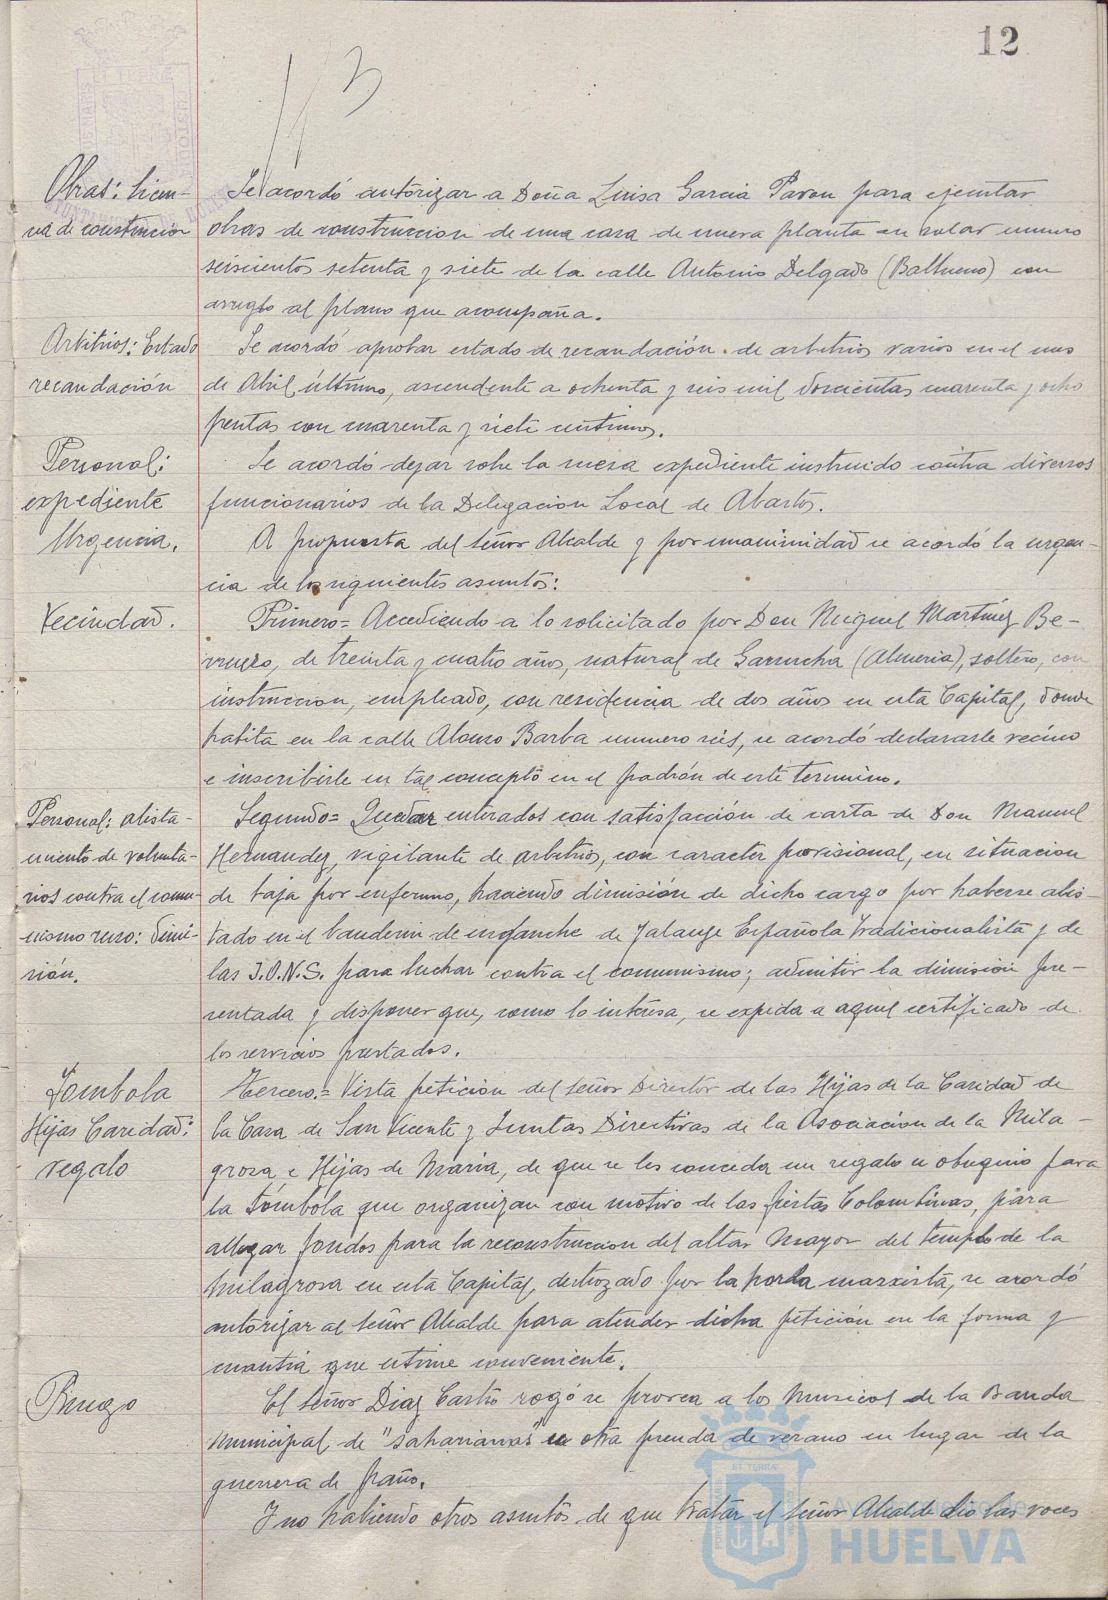 12
Obras: licen-
cia de construccion
Se acordó autorizar a Doña Luisa Garcia Pavon para ejecutar
obras de construccion de una casa de nueva planta en solar numero
seiscientos setenta y siete de la calle Antonio Delgado (Ballueno) con
arreglo al plano que acompaña.
Arbitrios: Estado
recaudación
Se acordó aprobar estado de recaudación de arbitrios varios en el mes
de Abril último, ascendente a ochenta y seis mil doscientas cuarenta y ocho
pesetas con cuarenta y siete centimos.
Personal:
expediente
Se acordó dejar sobre la mesa expediente instruido contra diversos
funcionarios de la Delegacion Local de Abastos.
Urgencia.
A propuesta del señor Alcalde y por unanimidad se acordó la urgen-
cia de los siguientes asuntos:
Vecindad.
Primero= Accediendo a lo solicitado por Don Miguel Martínez Be-
, de treinta y cuatro años, natural de Garrucha (Almeria), soltero, con
instruccion, empleado, con residencia de dos años en esta Capital, donde
habita en la calle Alonso Barba numero seis, se acordó declararle vecino
e inscribirle en tal concepto en el padrón de este termino.
Personal: alista-
miento de volunta-
rios contra el comu-
nismo ruso: dimi-
sión.
Segundo= Quedar enterados con satisfacción de carta de Don Manuel
Hernandez, vigilante de arbitrios, con caracter provisional, en situacion
de baja por enfermo, haciendo dimisión de dicho cargo por haberse alis-
tado en el banderin de enganche de Falange Española Tradicionalista y de
las J.O.N.S. para luchar contra el comunismo; admitir la dimision pre-
sentada y disponer que, como lo interesa, se expida a aquel certificado de
los servicios prestados.
Tombola
Hijas Caridad:
regalo
Tercero.= Vista peticion del señor Director de las Hijas de la Caridad de
la Casa de San Vicente y Juntas Directivas de la Asociación de la Mila-
grosa e Hijas de Maria, de que se les conceda un regalo u obsequio para
la tómbola que organizan con motivo de las fiestas Colombinas, para
allegar fondos para la reconstruccion del altar Mayor del templo de la
Milagrosa en esta Capital, destrozado por la horda marxista, se acordó
autorizar al señor Alcalde para atender dicha petición en la forma y
cuantia que estime conveniente.
Ruego
El señor Diaz Castro rogó se provea a los musicos de la Banda
Municipal de "saharianas" u otra prenda de verano en lugar de la
guerrera de paño.
Y no habiendo otros asuntos de que tratar el señor Alcalde dio las voces
Ayuntamiento de
HUELVA